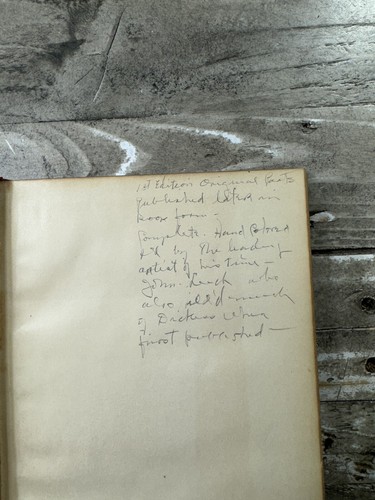 1st Edition Original Parts
published later in
book form -
Complete. Hand Colored
by the leading
artist of his time -
John Leech who
also much
of Dickens when
first published -